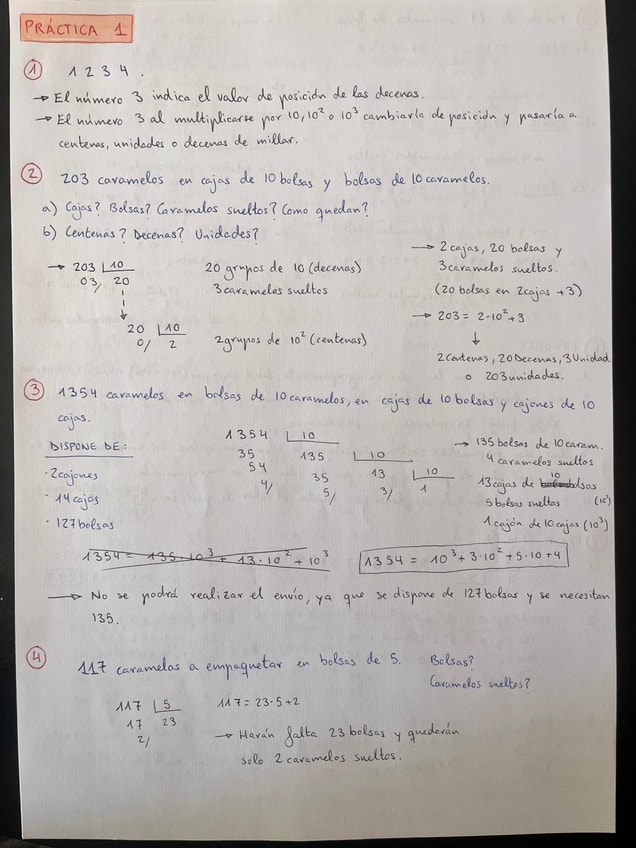 PRÁCTICA 1
1 1234.
→ El número 3 indica el valor de posición de las decenas.
→ El número 3 al multiplicarse por 10, 10² o 10³ cambiaría de posición y pasaría a
centenas, unidades o decenas de millar.
2 203 caramelos en cajas de 10 bolsas y bolsas de 10 caramelos.
a) Cajas? Bolsas? Caramelos sueltos? Como quedan?
b) Centenas? Decenas? Unidades?
→ 203 | 10
03/ 20
20 grupos de 10 (decenas)
3 caramelos sueltos
20 | 10
0/ 2
2 grupos de 10² (centenas)
→ 2 cajas, 20 bolsas y
3 caramelos sueltos.
(20 bolsas en 2 cajas + 3)
→ 203 = 2·10² + 3
↓
2 Centenas, 20 Decenas, 3 Unidad
o 203 unidades.
3 1354 caramelos en bolsas de 10 caramelos, en cajas de 10 bolsas y cajones de 10
cajas.
DISPONE DE:
· 2 cajones
· 14 cajas
· 127 bolsas
1354 | 10
35 135 | 10
54 35 13 | 10
4/ 5/ 3/ 1
→ 135 bolsas de 10 caram.
4 caramelos sueltos
13 cajas de 10 bolsas
5 bolsas sueltas (10²)
1 cajón de 10 cajas (10³)
1354 = 135·10³ + 13·10² + 10³
1354 = 10³ + 3·10² + 5·10 + 4
→ No se podrá realizar el envío, ya que se dispone de 127 bolsas y se necesitan
135.
4 117 caramelos a empaquetar en bolsas de 5. Bolsas?
Caramelos sueltos?
117 | 5
17 23
2/
117 = 23·5 + 2
→ Harán falta 23 bolsas y quederán
solo 2 caramelos sueltos.